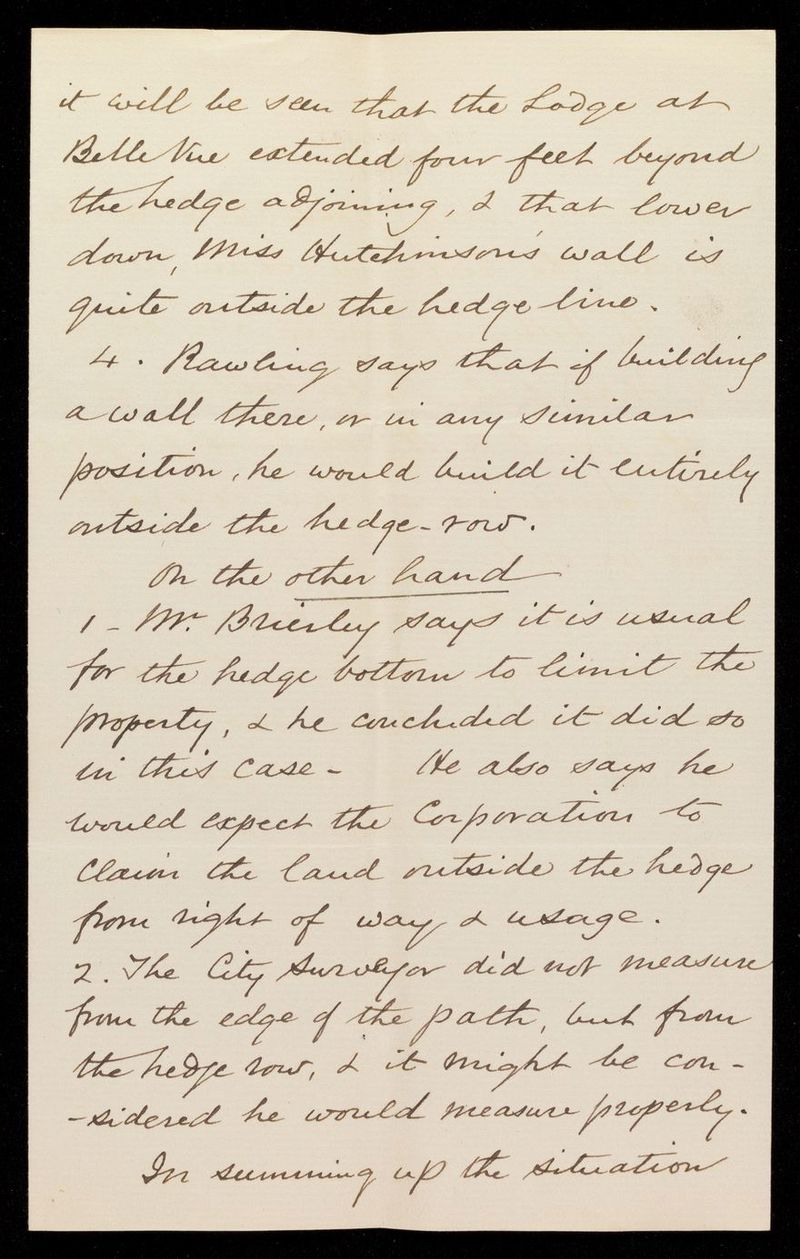 it will be seen that the Lodge at
Belle Vue extended four feet beyond
the hedge adjoining, & that lower
down, Miss Hutchinson's wall is
quite outside the hedge line.
4. Rawling says that if building
a wall there, or in any similar
position, he would build it entirely
outside the hedge-row.
On the other hand
1 - Mr. Brierley says it is usual
for the hedge bottom to limit the
property, & he concluded it did so
in this case - He also says he
would expect the Corporation to
claim the land outside the hedge
from right of way & usage.
2. The City Surveyor did not measure
from the edge of the path, but from
the hedge row, & it might be con-
-sidered he would measure properly.
In summing up the situation